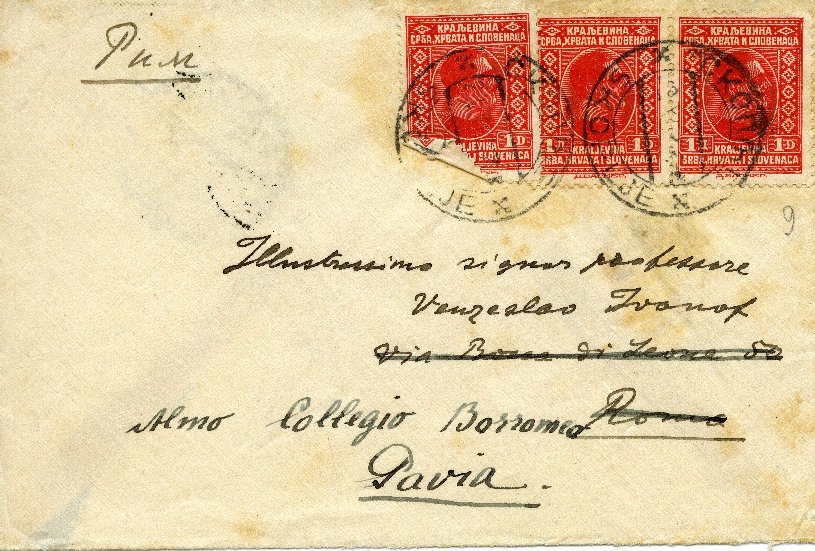 Рим
КРАЉЕВИНА
СРБА, ХРВАТА И СЛОВЕНАЦА
1D
KRALJEVINA
I SLOVENACA
КРАЉЕВИНА
СРБА, ХРВАТА И СЛОВЕНАЦА
1D
KRALJEVINA
SRBA, HRVATA I SLOVENACA
КРАЉЕВИНА
СРБА, ХРВАТА И СЛОВЕНАЦА
1D 1D
KRALJEVINA
SRBA, HRVATA I SLOVENACA
СКОПЉЕ
SKOPLJE
9
Illustrissimo signor professore
Venzeslao Ivanof
Via Bocca di Leone 50
Roma
Almo Collegio Borromeo
Pavia.